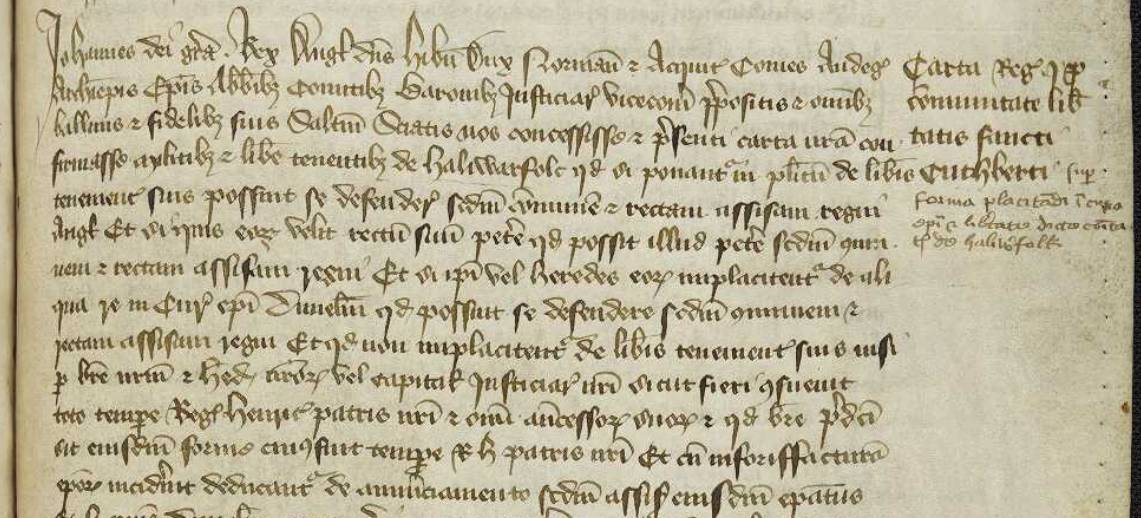 Johannes dei gra. Rex Angl dns Hibn Dux Normann & Aquit Comes Andeg
Archiepis Epis Abbibz Comitibz Baronibz Justiciar vicecom ppositis & omibz
ballivis & fidelibz suis Saltm Sciatis nos concessisse & psenti carta nra con
firmasse militibz & libe tenentibz de Haliwarfolc qd si ponantr in plitu de libis
tenement suis possint se defender scdm commune & rectam assisam regni
Angl Et si quis eor velit rectu suu pete qd possit illud pete scdm com
nem & rectam assisam regni Et si ipi vel heredes eor implacitent de ali
qua re in Cur epi Dunelm qd possint se defendere scdm comunem &
rectam assisam regni Et qd non implacitent de libis tenement suis nisi
p bre nrm & hed nror vel capital Justiciar nri sicut fieri consuevit
toto tempe Reg Henric patris nri & omi ancessor suor & qd bre pdcm
sit eiusdm forme cuius fuit tempe R H patris nri Et cu in foriffactura
epor inciderint deducant de amerciamento scdm assis eiusdm epatus
Carta Reg J p
comunitate lib
tatis sancti
Cuthberti sup
forma placitandi i curia
epi & libtate dicte coita
t de Haliwfolk